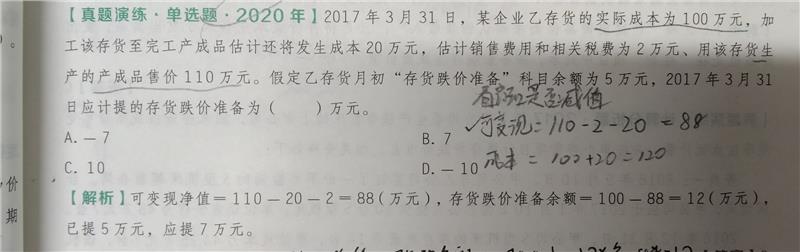 【真题演练·单选题·2020年】2017年3月31日，某企业乙存货的实际成本为100万元，加
工该存货至完工产成品估计还将发生成本20万元，估计销售费用和相关税费为2万元、用该存货生
产的产成品售价110万元。假定乙存货月初“存货跌价准备”科目余额为5万元，2017年3月31
日应计提的存货跌价准备为（ ）万元。
是否减值
A.－7
B.7
可变现=110-2-20=88
C.10
D.－10
成本=100+20=120
【解析】可变现净值＝110－20－2＝88（万元），存货跌价准备余额＝100－88＝12（万元），
已提5万元，应提7万元。
价
期